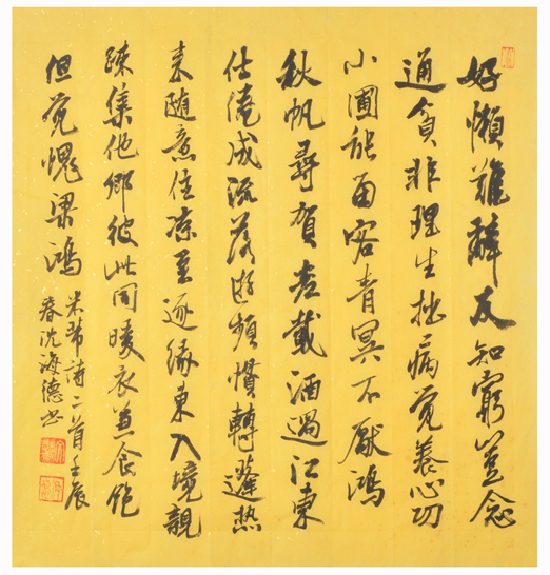 好懶難辭友知窮豈念
通貧非理生拙病覺養心功
小圃能留客青冥不厭鴻
秋帆尋賀老戴酒過江東
仕倦成流落遊頻慣轉蓬熱
来随意住凉至逐緣東入境親
疎集他鄉彼此同暖衣兼食飽
但覺愧梁鴻
米芾詩二首壬辰
春沈海德书